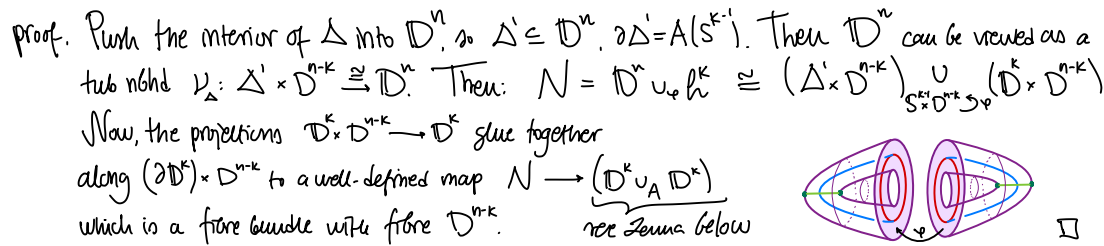 proof. Push the interior of Δ into 𝔻ⁿ, so Δ' ⊆ 𝔻ⁿ, ∂Δ' = A(S^{k-1}). Then 𝔻ⁿ can be viewed as a
tub nbhd ν_Δ: Δ' × 𝔻^{n-k} ≅→ 𝔻ⁿ. Then: N = 𝔻ⁿ ∪_φ h^k ≅ (Δ' × 𝔻^{n-k}) ∪_{S^{k-1} × D^{n-k} ↻ φ} (𝔻^k × 𝔻^{n-k})
Now, the projections 𝔻^k × 𝔻^{n-k} → 𝔻^k glue together
along (∂𝔻^k) × 𝔻^{n-k} to a well-defined map N → (𝔻^k ∪_A 𝔻^k)
which is a fibre bundle with fibre 𝔻^{n-k}. see Lemma below
φ □